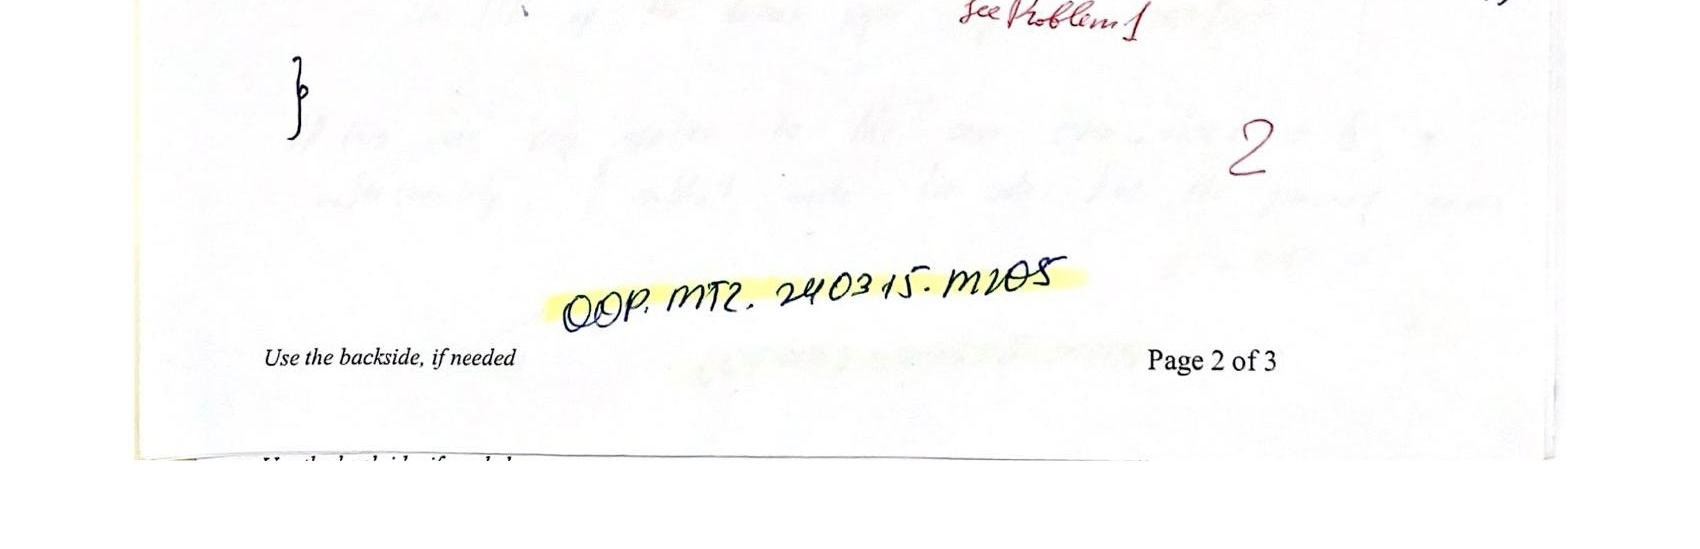 see Problem 1
}
2
OOP. MT2. 240315. M205
Use the backside, if needed
Page 2 of 3